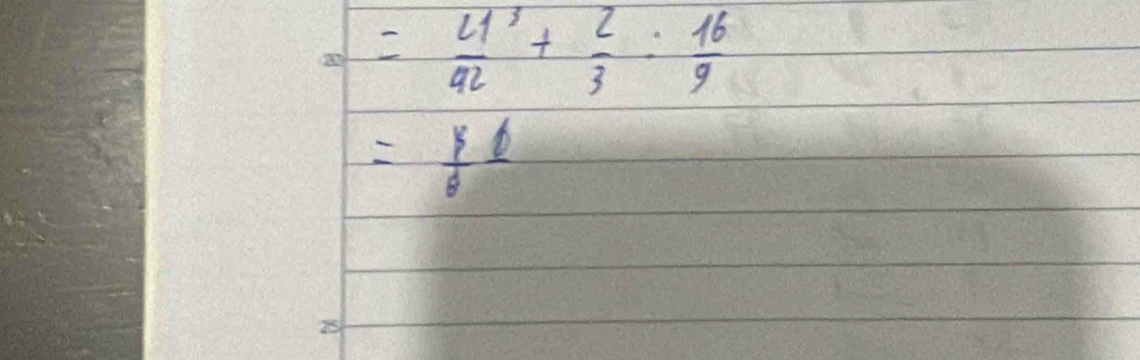 20
= 21³/42 + 2/3 · 16/9
=
25